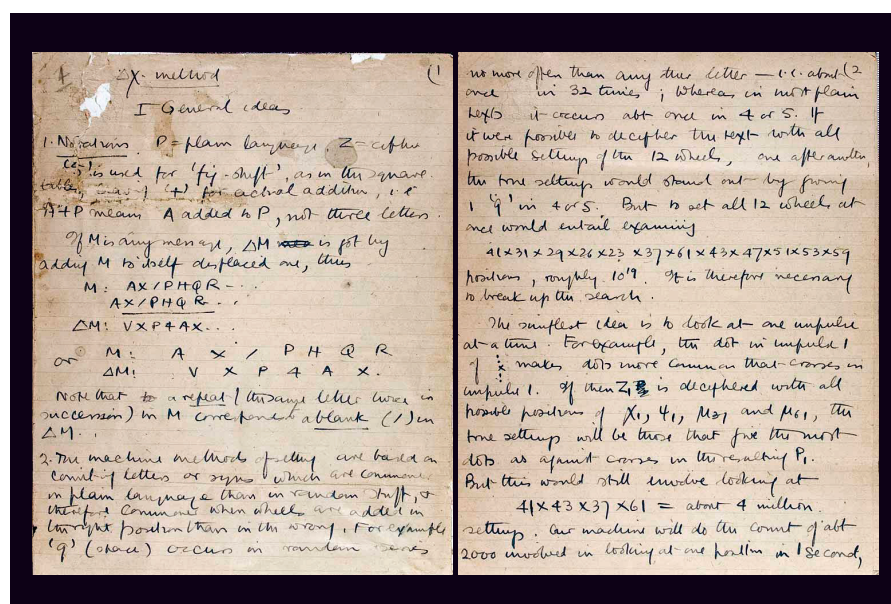 ΔX method (1
I General ideas
1. Notations. P = plain language. Z = cipher
is used for 'fig-shift', as in the square
'+' for actual addition, i.e.
A+P means A added to P, not three letters.
If M is any message, ΔM is got by
adding M to itself displaced one, thus
M: AX/PHQR-..
AX/PHQR...
ΔM: VXP4AX...
or M: A X / P H Q R
ΔM: V X P 4 A X.
Note that a repeat (the same letter twice in
succession) in M corresponds a blank (/) in
ΔM.
2. The machine methods of setting are based on
counting letters or signs which are commoner
in plain language than in random stuff, &
therefore commoner when wheels are added in
the right position than in the wrong. For example
'9' (space) occurs in random series
no more often than any other letter — i.e. about (2
once in 32 times; whereas in most plain
texts it occurs abt once in 4 or 5. If
it were possible to decipher the text with all
possible settings of the 12 wheels, one after another,
the true settings would stand out by giving
1 '9' in 4 or 5. But to set all 12 wheels at
once would entail examining
41×31×29×26×23×37×61×43×47×51×53×59
positions, roughly 10¹⁹. It is therefore necessary
to break up the search.
The simplest idea is to look at one impulse
at a time. For example, the dot in impulse 1
of makes dots more common that crosses in
impulse 1. If then Z₁ is deciphered with all
possible positions of X₁, Ψ₁, μ37 and μ61, the
true settings will be those that give the most
dots as against crosses in the resulting P₁.
But this would still involve looking at
41×43×37×61 = about 4 million
settings. Our machine will do the count of abt
2000 involved in looking at one position in 1 second,